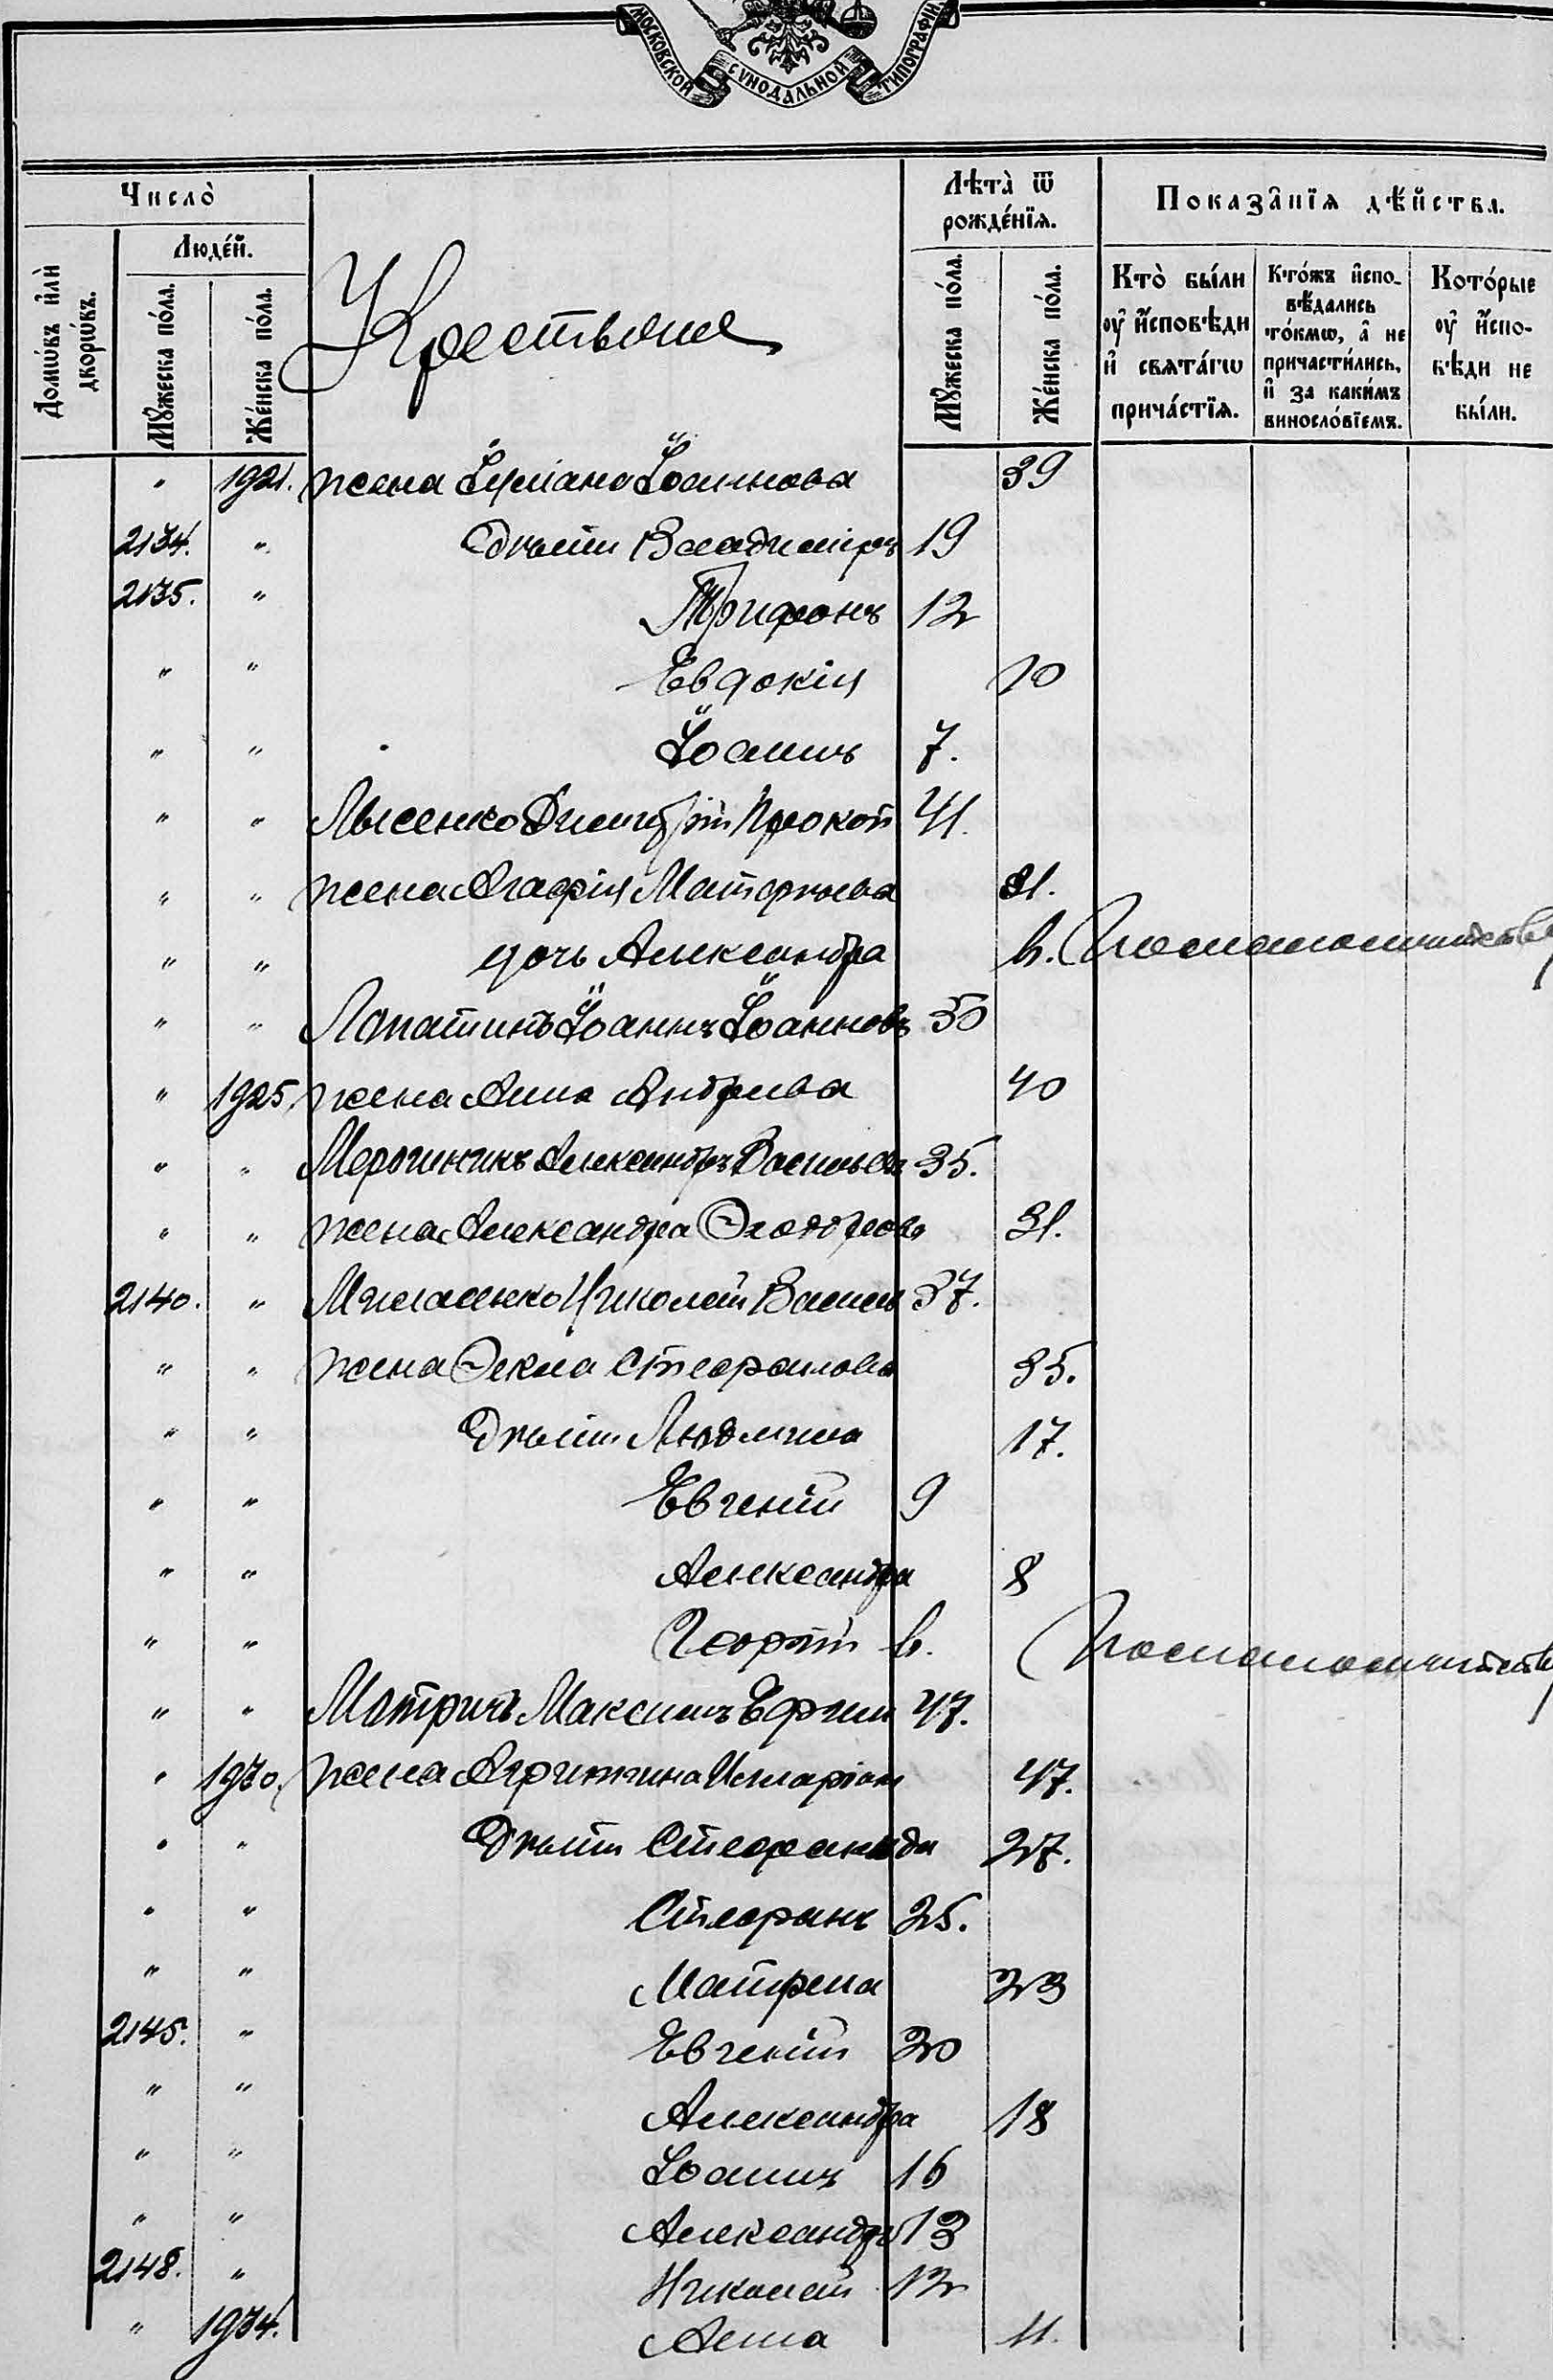 МОСКОВСКОЙ СѴНОДАЛЬНОЙ ТИПОГРАФІИ
Число̀
Люде́й.
Домѡ́въ и҆лѝ дворѡ́въ.
Мꙋ́жеска по́ла.
Же́нска по́ла.
Крестьяне
Лѣта̀ ѿ рожде́нїѧ.
Мꙋ́жеска по́ла.
Же́нска по́ла.
Показа̑нїѧ дѣ́йства.
Кто̀ бы́ли ᲂу҆ и҆́сповѣди и҆ свѧта́гѡ прича́стїѧ.
Кто́жъ и҆сповѣ́дались то́кмѡ, а҆ не причасти́лись, и҆ за каки́мъ виносло́вїемъ.
Кото́рые ᲂу҆ и҆́сповѣди не бы́ли.
" 1921. жена Іуліана Іоаннова 39
2134. " дѣти Владиміръ 19
2135. " Трифонъ 12
" " Евдокія 10
" " Іоаннъ 7.
" " Лысенко Димитрій Прокоп 41.
" " жена Агафія Матѳеева 31.
" " дочь Александра в. По малолѣтству
" " Лопатинъ Іоаннъ Іоанновъ 50
" 1925. жена Анна Андреева 40
" " Александръ Васильевъ 35.
" " жена Александра Ѳеодорова 31.
2140. " Николай Василь 37.
" " жена Ѳекла Стефанова 35.
" " дѣти Людмила 17.
" " Евгеній 9
" " Александра 8
" " Георгій в. По малолѣтству
" " Матричъ Максимъ Ефим 47.
" 1930. жена Агрипина Иларіон 47.
" " дѣти Стефанида 27.
" " Стефанъ 25.
" " Матрена 23
2145. " Евгеній 20
" " Александра 18
" " Іоаннъ 16
" " Александръ 13
2148. " Николай 12
" 1934. Анна 11.